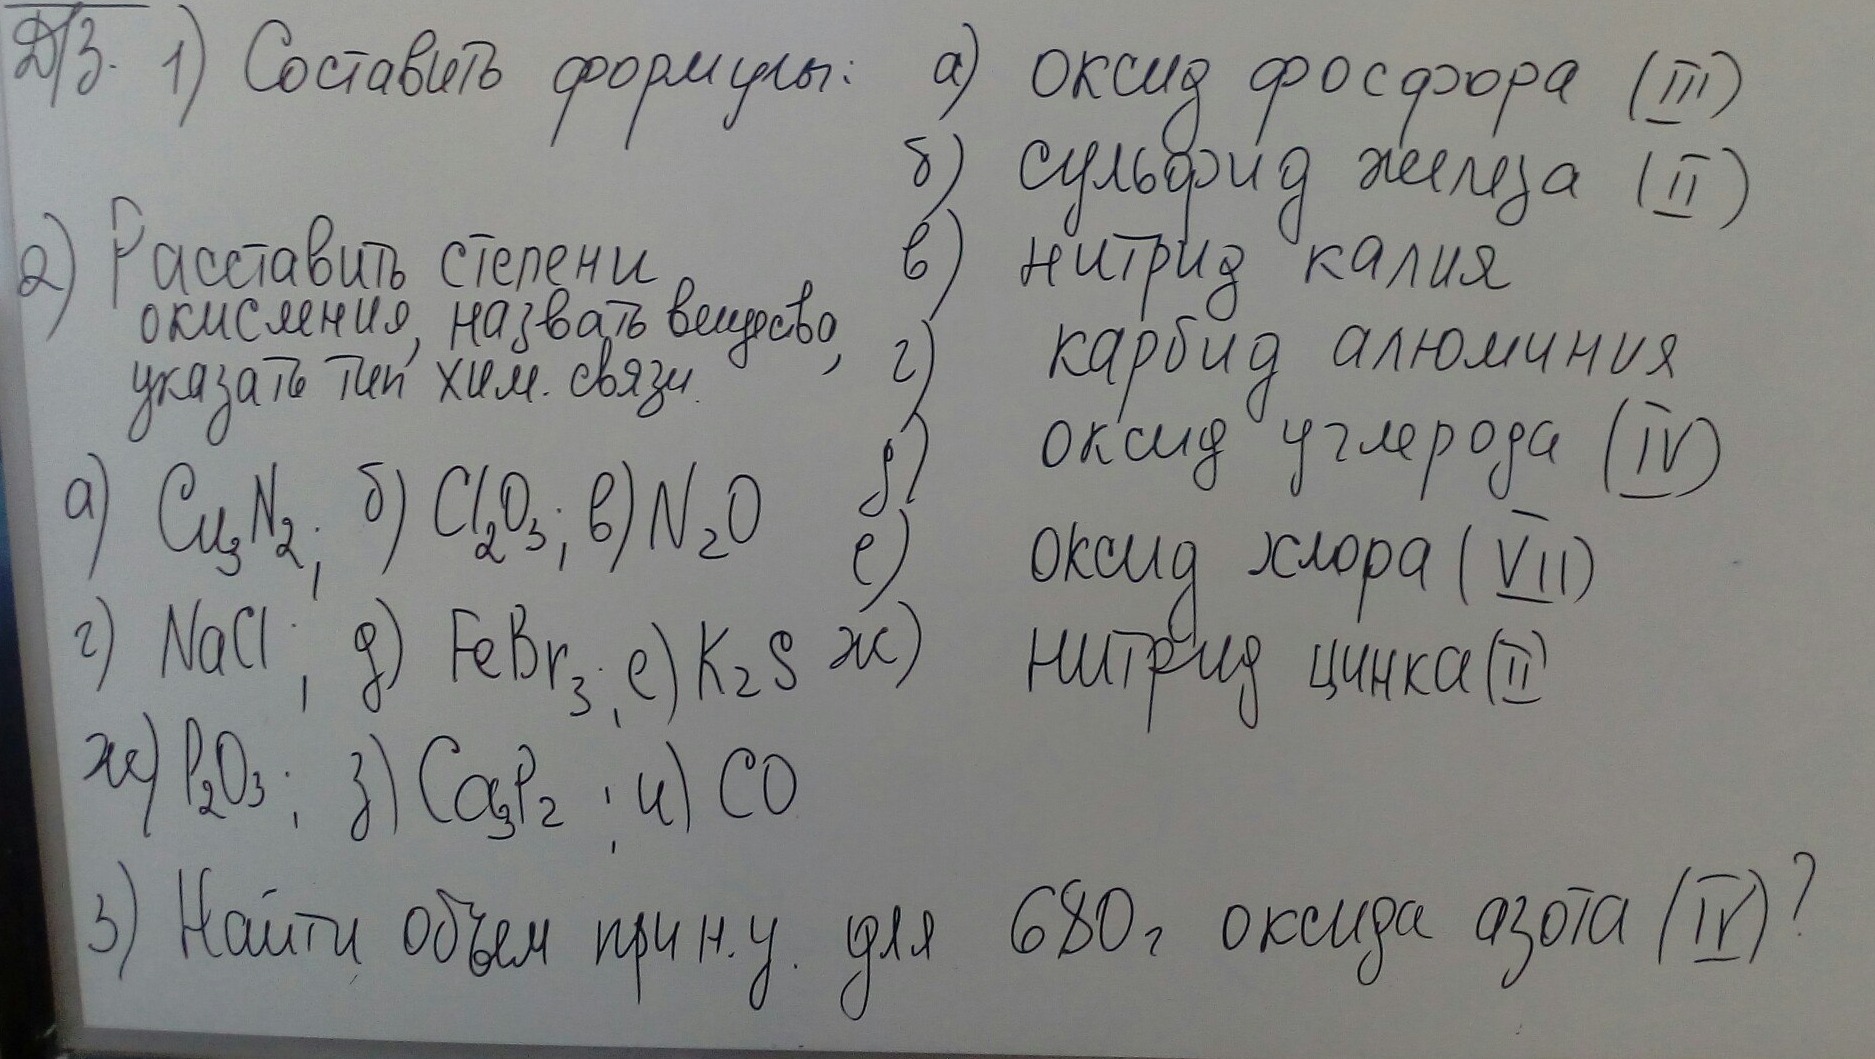 Д/З. 1) Составить формулы: а) оксид фосфора (III)
б) сульфид железа (II)
в) нитрид калия
г) карбид алюминия
д) оксид углерода (IV)
е) оксид хлора (VII)
ж) нитрид цинка (II)
2) Расставить степени
окисления, назвать вещества,
указать тип хим. связи.
а) Cu₃N₂; б) Cl₂O₃; в) N₂O
г) NaCl; д) FeBr₃; е) K₂S
ж) P₂O₃; з) Ca₃P₂; и) CO
3) Найти объем при н.у. для 680г оксида азота (IV)?